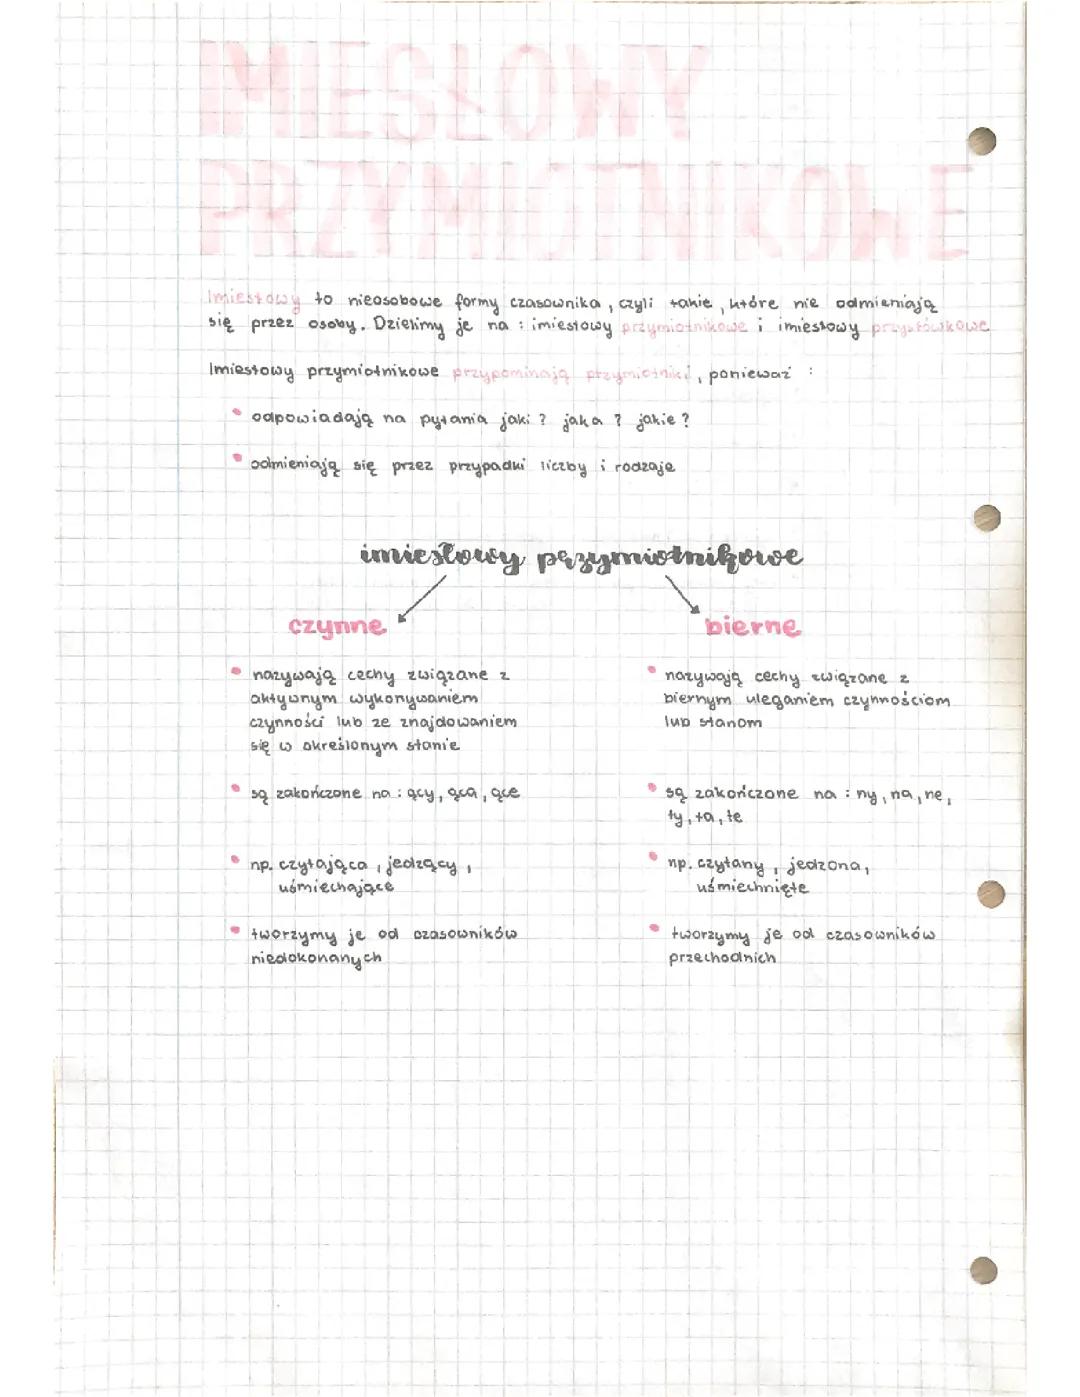 IMIESŁOWY
PRZYMIOTNIKOWE
Imiesłowy to nieosobowe formy czasownika, czyli takie, które nie odmieniają
się przez osoby. Dzielimy je na : imiesłowy przymiotnikowe i imiesłowy przysłówkowe
Imiesłowy przymiotnikowe przypominają przymiotniki, ponieważ :
• odpowiadają na pytania jaki? jaka? jakie?
• odmieniają się przez przypadki liczby i rodzaje
imiesłowy przymiotnikowe
czynne
• nazywają cechy związane z
aktywnym wykonywaniem
czynności lub ze znajdowaniem
się w określonym stanie
• są zakończone na : ący, ąca, ące
• np. czytająca, jedzący,
uśmiechające
• tworzymy je od czasowników
niedokonanych
bierne
• nazywają cechy związane z
biernym uleganiem czynnościom
lub stanom
• są zakończone na : ny, na, ne,
ty, ta, te
• np. czytany, jedzona,
uśmiechnięte
• tworzymy je od czasowników
przechodnich